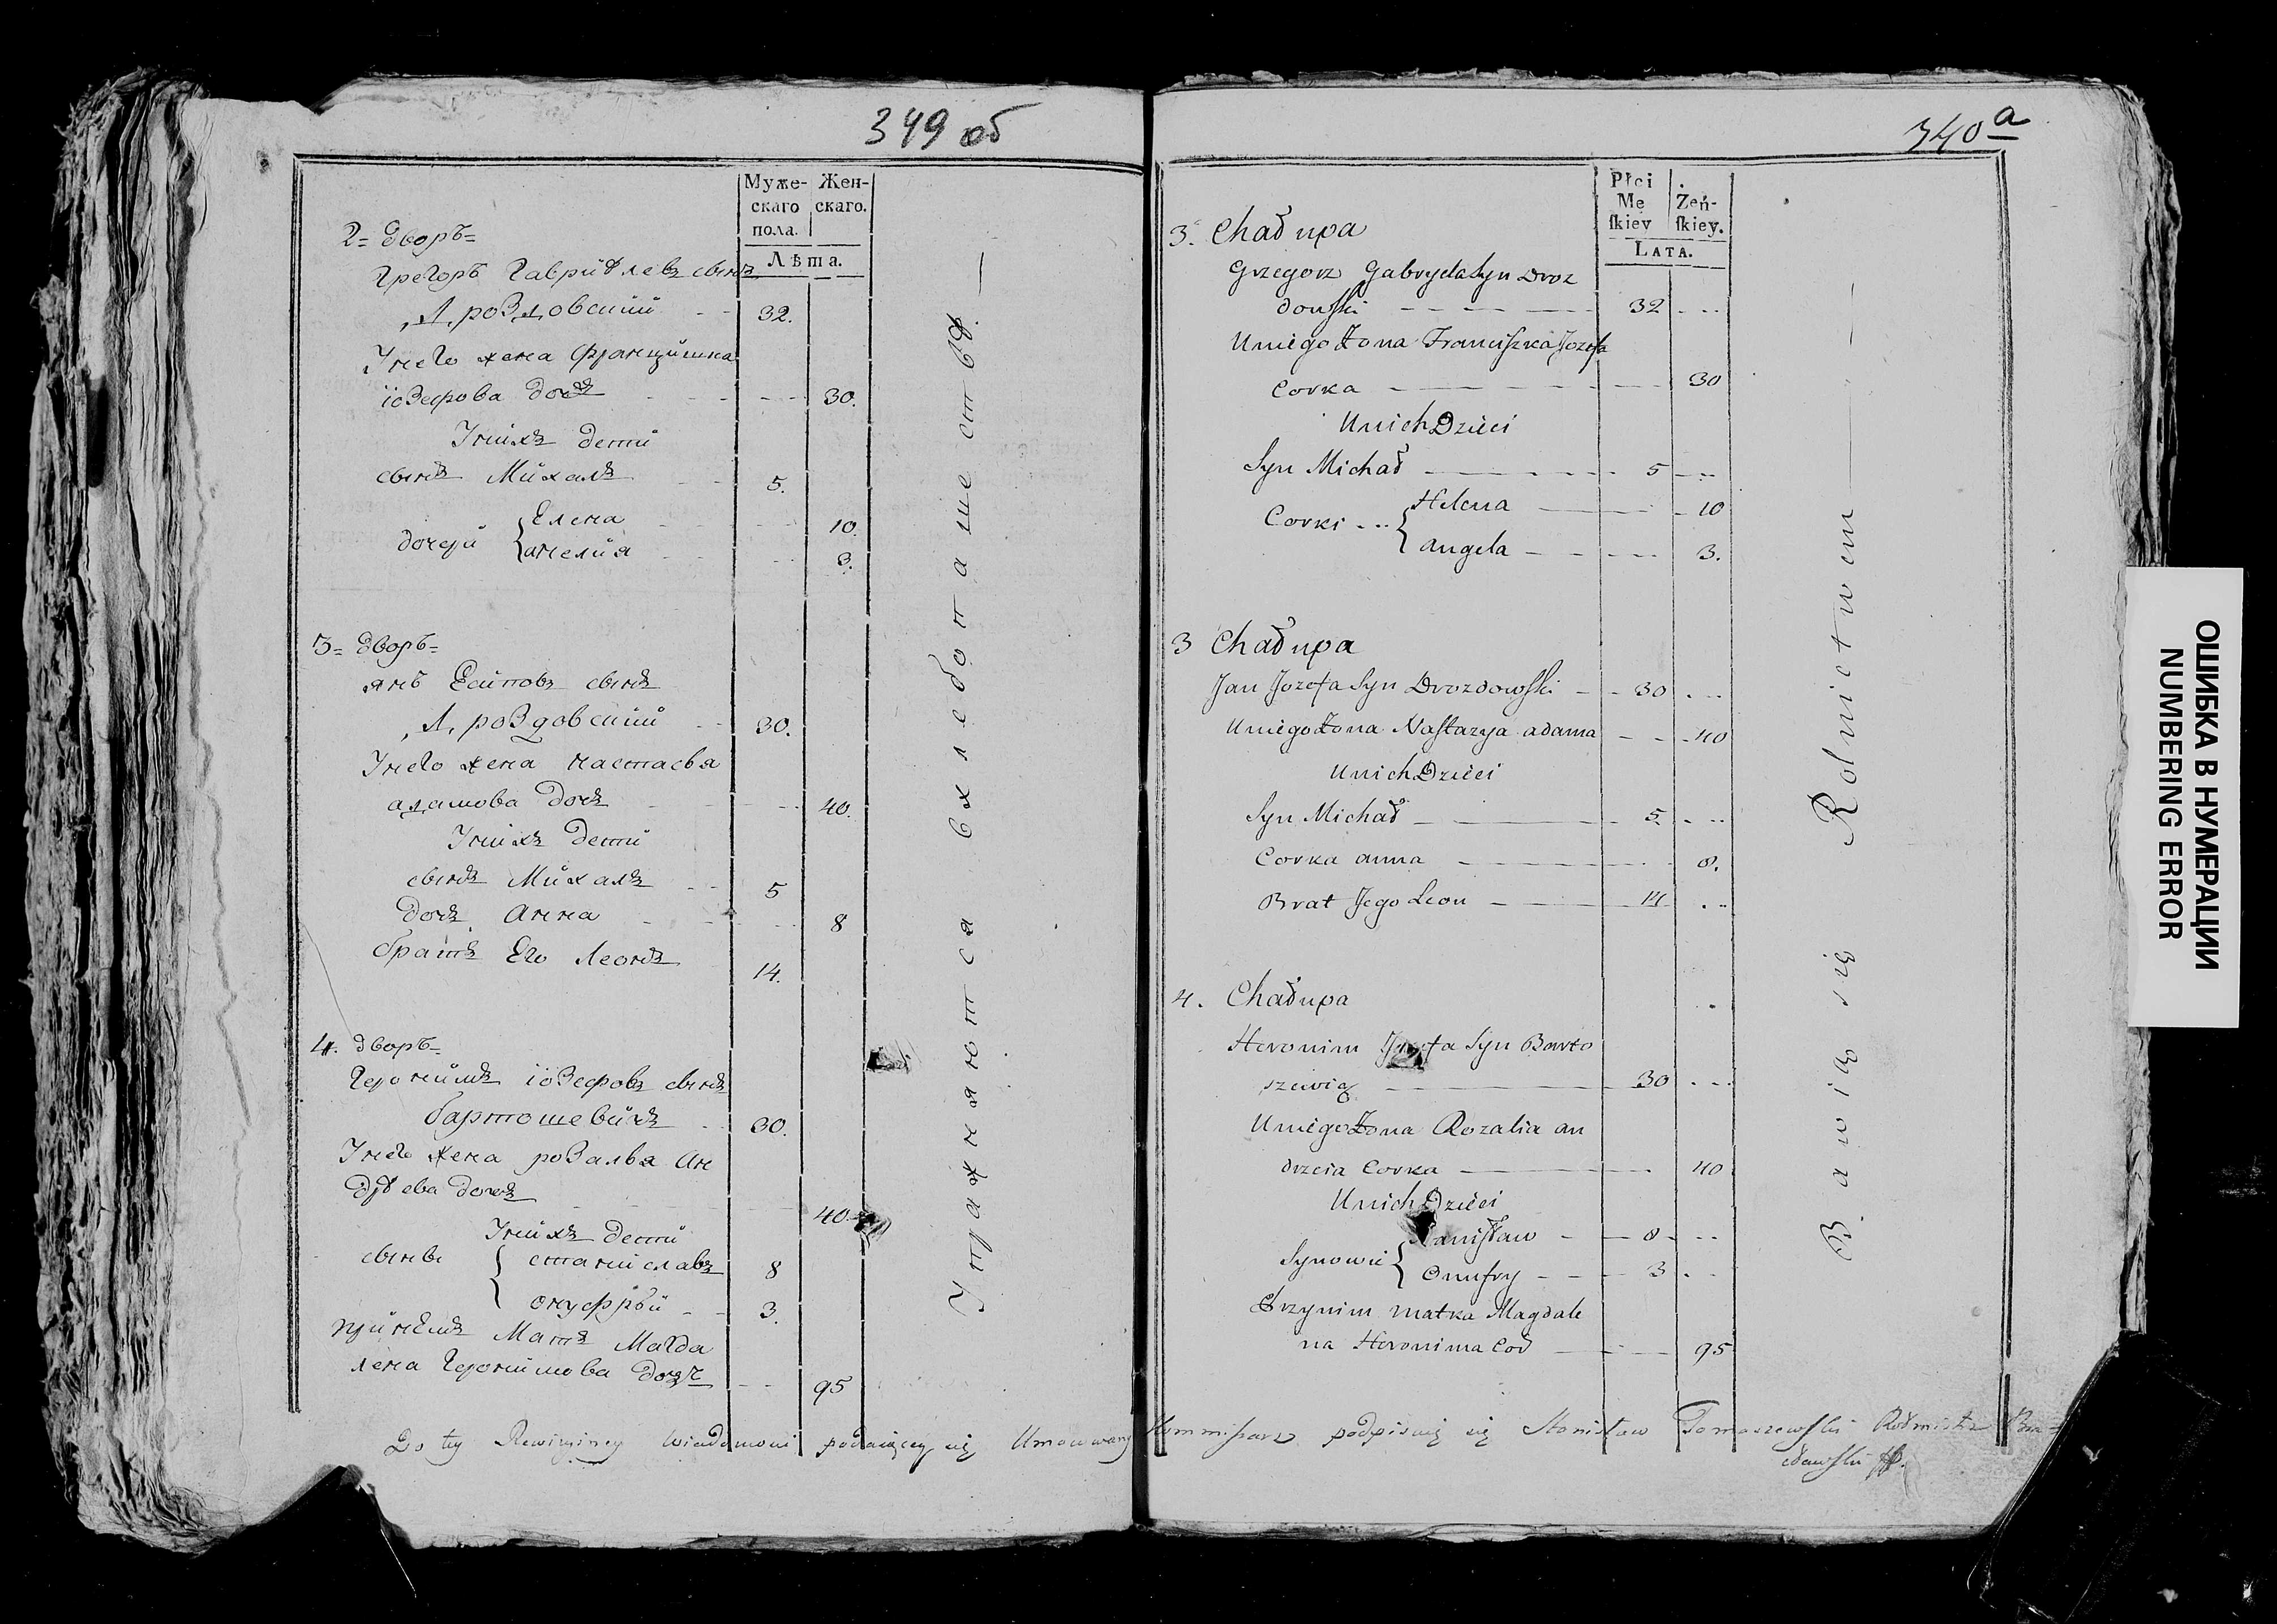 349 об
Муже-
скаго
пола.
Жен-
скаго.
Лѣта.
2 = дворъ =
Грегоръ Гаврiилевъ сынъ
Дроздовскiй 32.
Унего жена Францишка
iозефова дочъ 30.
Унихъ дети
сынъ Михалъ 5.
дочери { Елена 10.
анелия 3.
3 = дворъ =
янъ Есиповъ сынъ
Дроздовскiй 30.
Унего жена настасья
адамова дочъ 40.
Унихъ дети
сынъ Михалъ 5
дочъ Анна 8
братъ Его Леонъ 14.
4. дворъ =
Геронимъ iозефовъ сынъ
бартошевичъ 30.
Унего жена розалья Ан
дреева дочъ 40
Унихъ дети
сыны { станиславъ 8
онуфрѣй 3.
принемъ Матъ Магда
лена Геронимова дочъ 95
Упажняются вхлебопашествѣ.
340 a
Płci
Mę
ſkiey
Żeń-
ſkiey.
LATA.
3. Chałupa
Grzegorz Gabryela Syn Droz
dowſki 32
Uniego Żona Franciſzka Jozefa
Corka 30
Unich Dzieci
Syn Michał 5
Corki { Helena 10
Angela 3.
3 Chałupa
Jan Jozefa Syn Drozdowſki 30
Uniego Żona Naſtazya adama 40
Unich Dzieci
Syn Michał 5.
Corka anna 8.
Brat Jego Leon 14
4. Chałupa
Heronim Jozefa Syn Barto
szewicz 30
Uniego Żona Rozalia an
drzeia Corka 40
Unich Dzieci
Synowie { Staniſław 8
Onufry 3
Przynim matka Magdale
na Heronima Cor 95
Bawią się Rolnictwem
Do tey Rewizyiney Wiadomosci podaiącey się Umocowany Kommiſsarz podpisuię się Stanisław Tomaszewſki Rotmistrz Bra=
cławſki
ОШИБКА В НУМЕРАЦИИ
NUMBERING ERROR